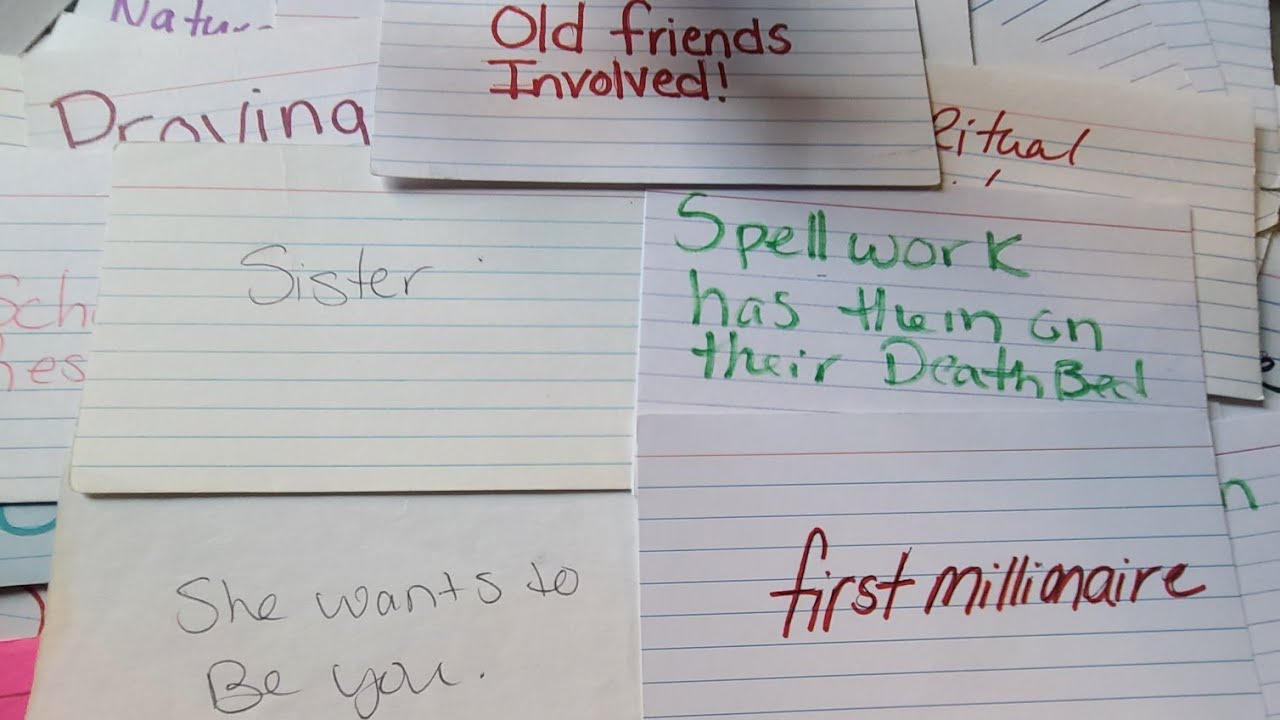 Old friends
Involved!
Ritual
Sister
Spellwork
has them on
their Death Bed
She wants to
Be you.
first millionaire